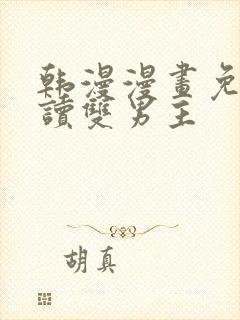 韩漫漫畫免
讀雙男主
胡真